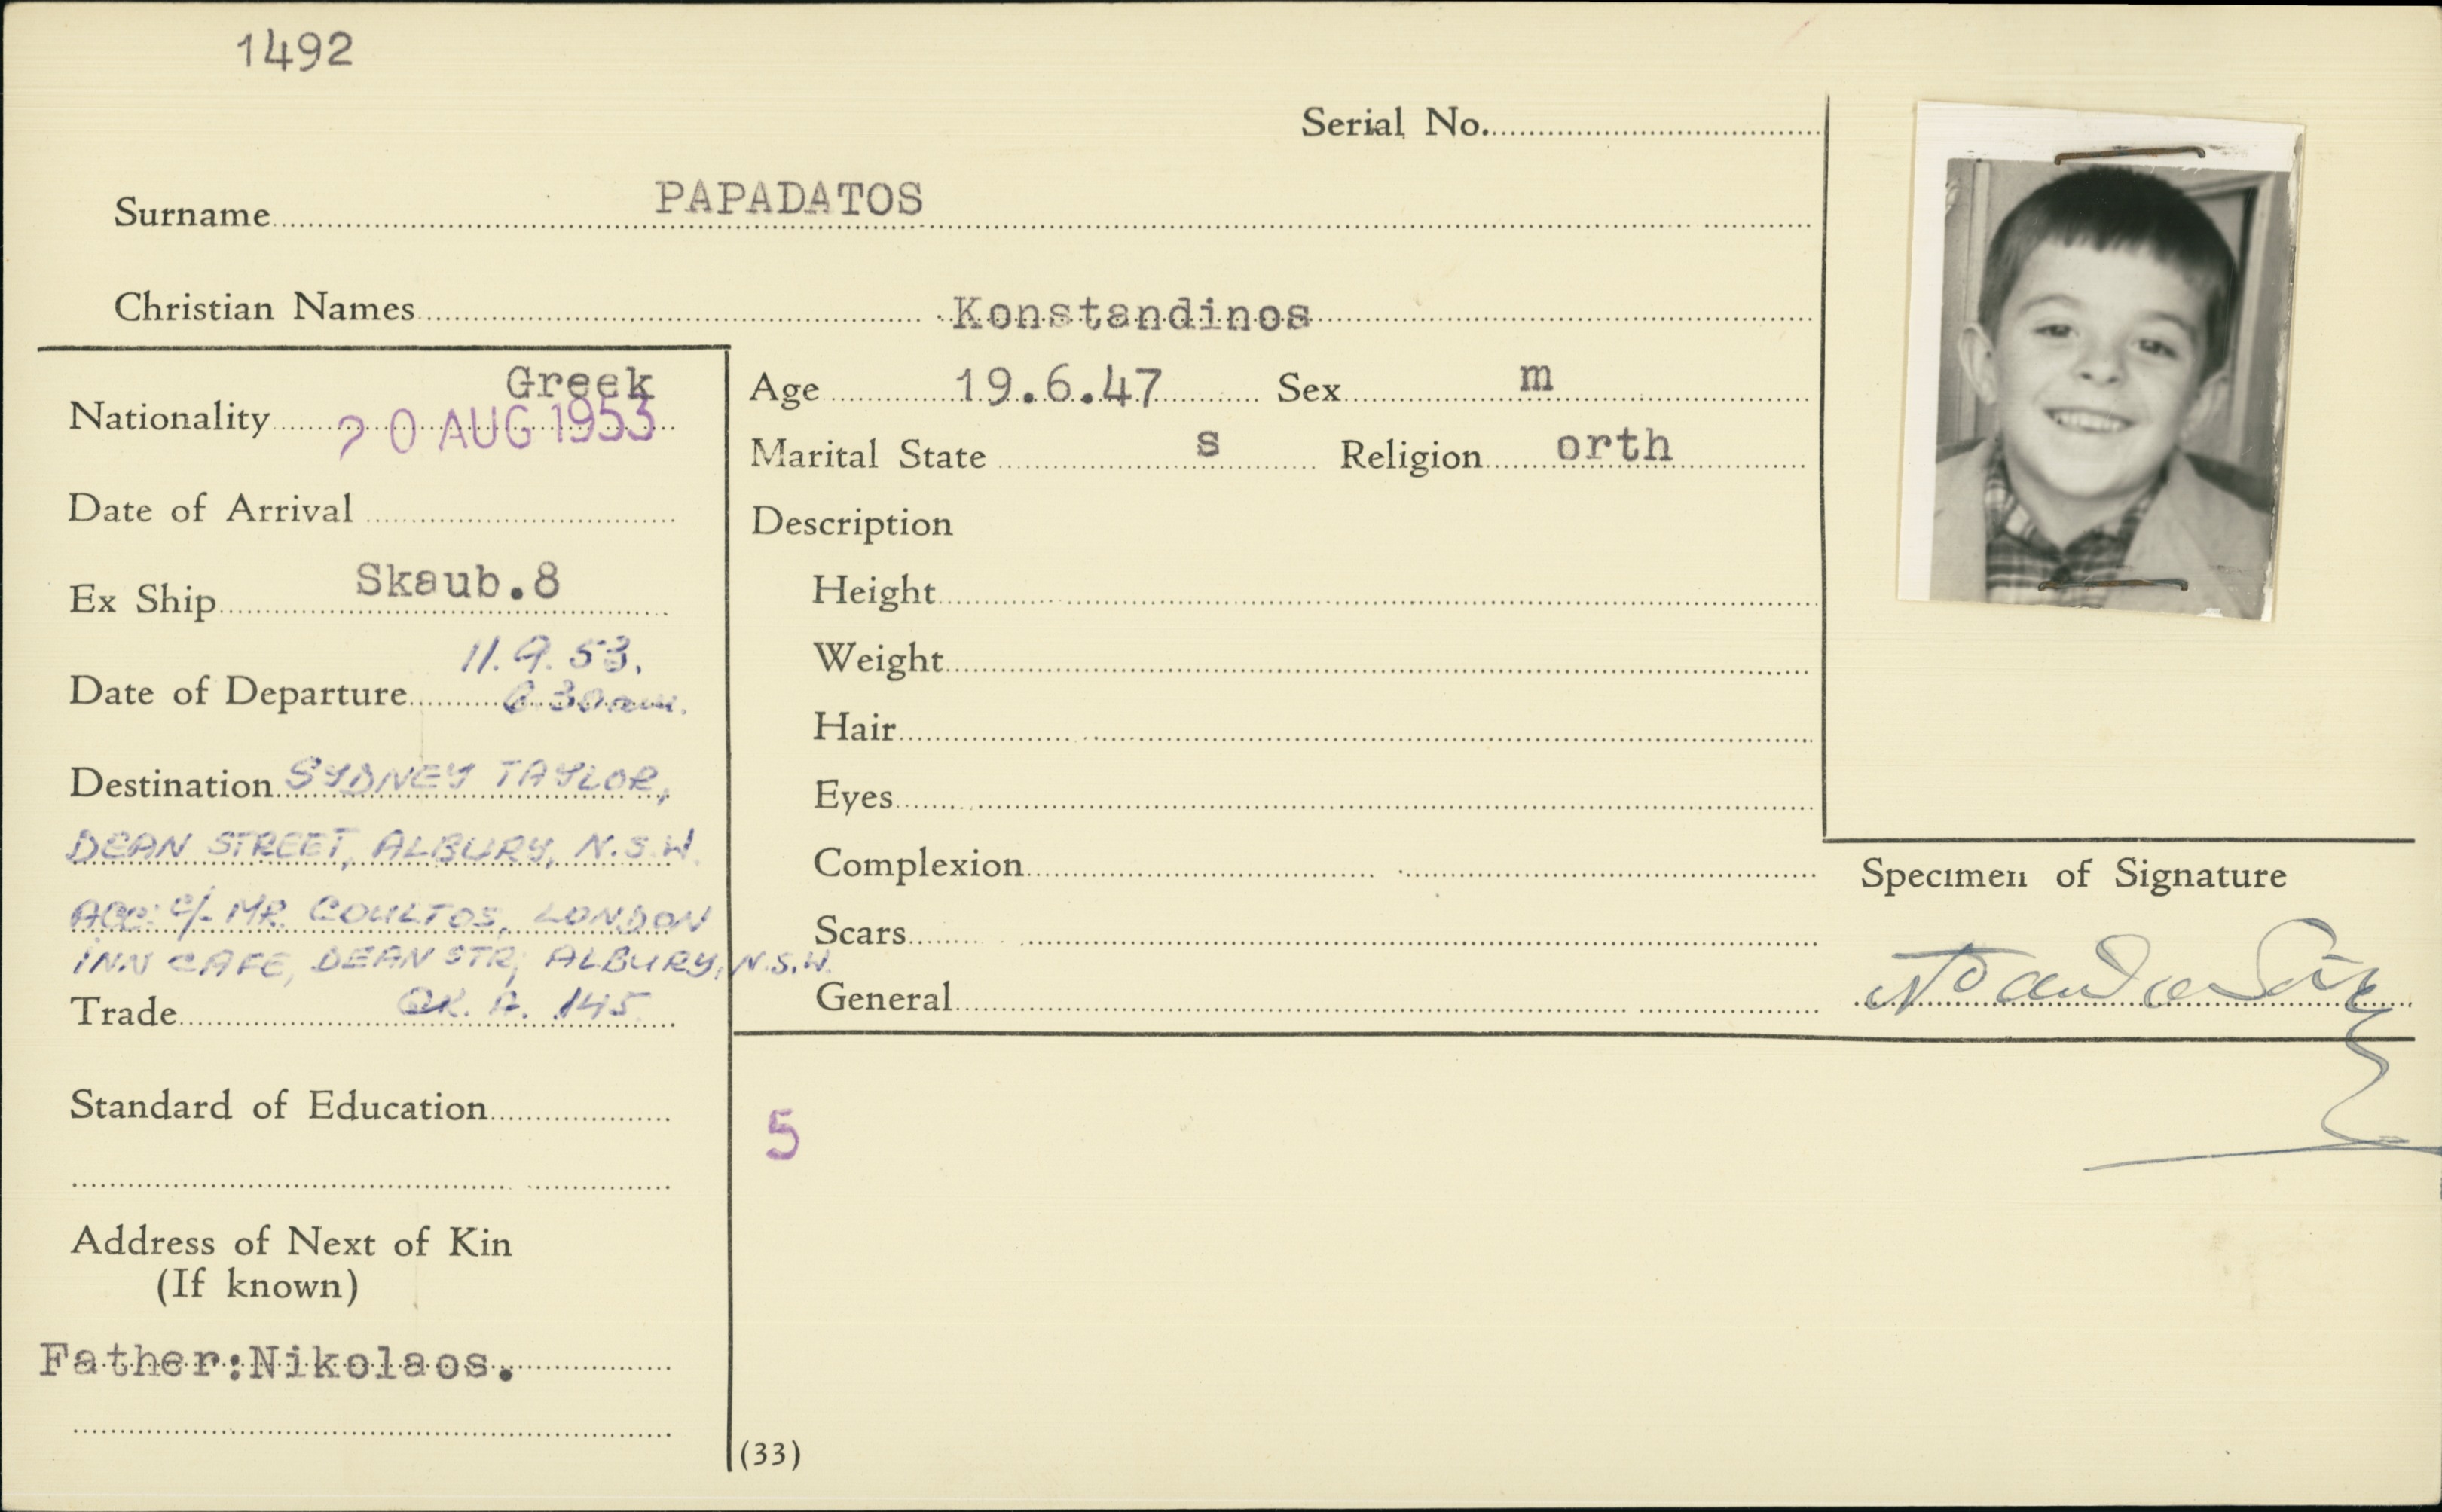 1492
Serial No.
Surname PAPADATOS
Christian Names Konstandinos
Nationality Greek
20 AUG 1953
Date of Arrival
Ex Ship Skaub.8
11.9.53.
Date of Departure 6.30am.
Destination SYDNEY TAYLOR,
DEAN STREET, ALBURY, N.S.W.
ACC: c/- MR. COULTOS, LONDON
INN CAFE, DEAN STR, ALBURY, N.S.W.
Trade A. 145
Standard of Education
Address of Next of Kin
(If known)
Father:Nikolaos.
Age 19.6.47 Sex m
Marital State s Religion orth
Description
Height
Weight
Hair
Eyes
Complexion
Scars
General
5
(33)
Specimen of Signature